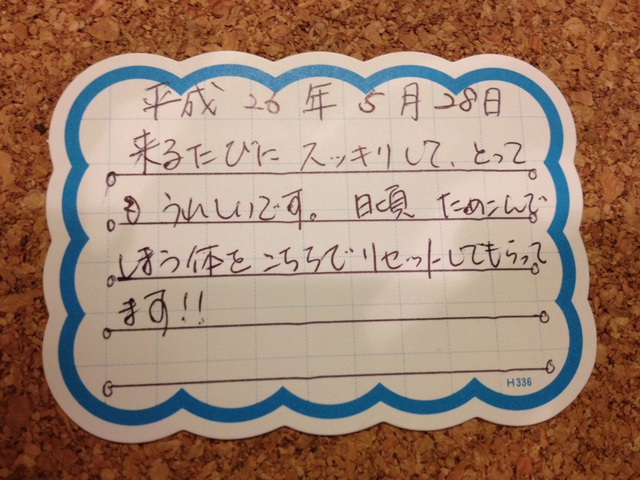 平成 26 年 5 月 28日
来るたびに スッキリして、とって
も うれしいです。 日頃 ためこんで
しまう体を こちらで リセットしてもらって
ます!!
H336